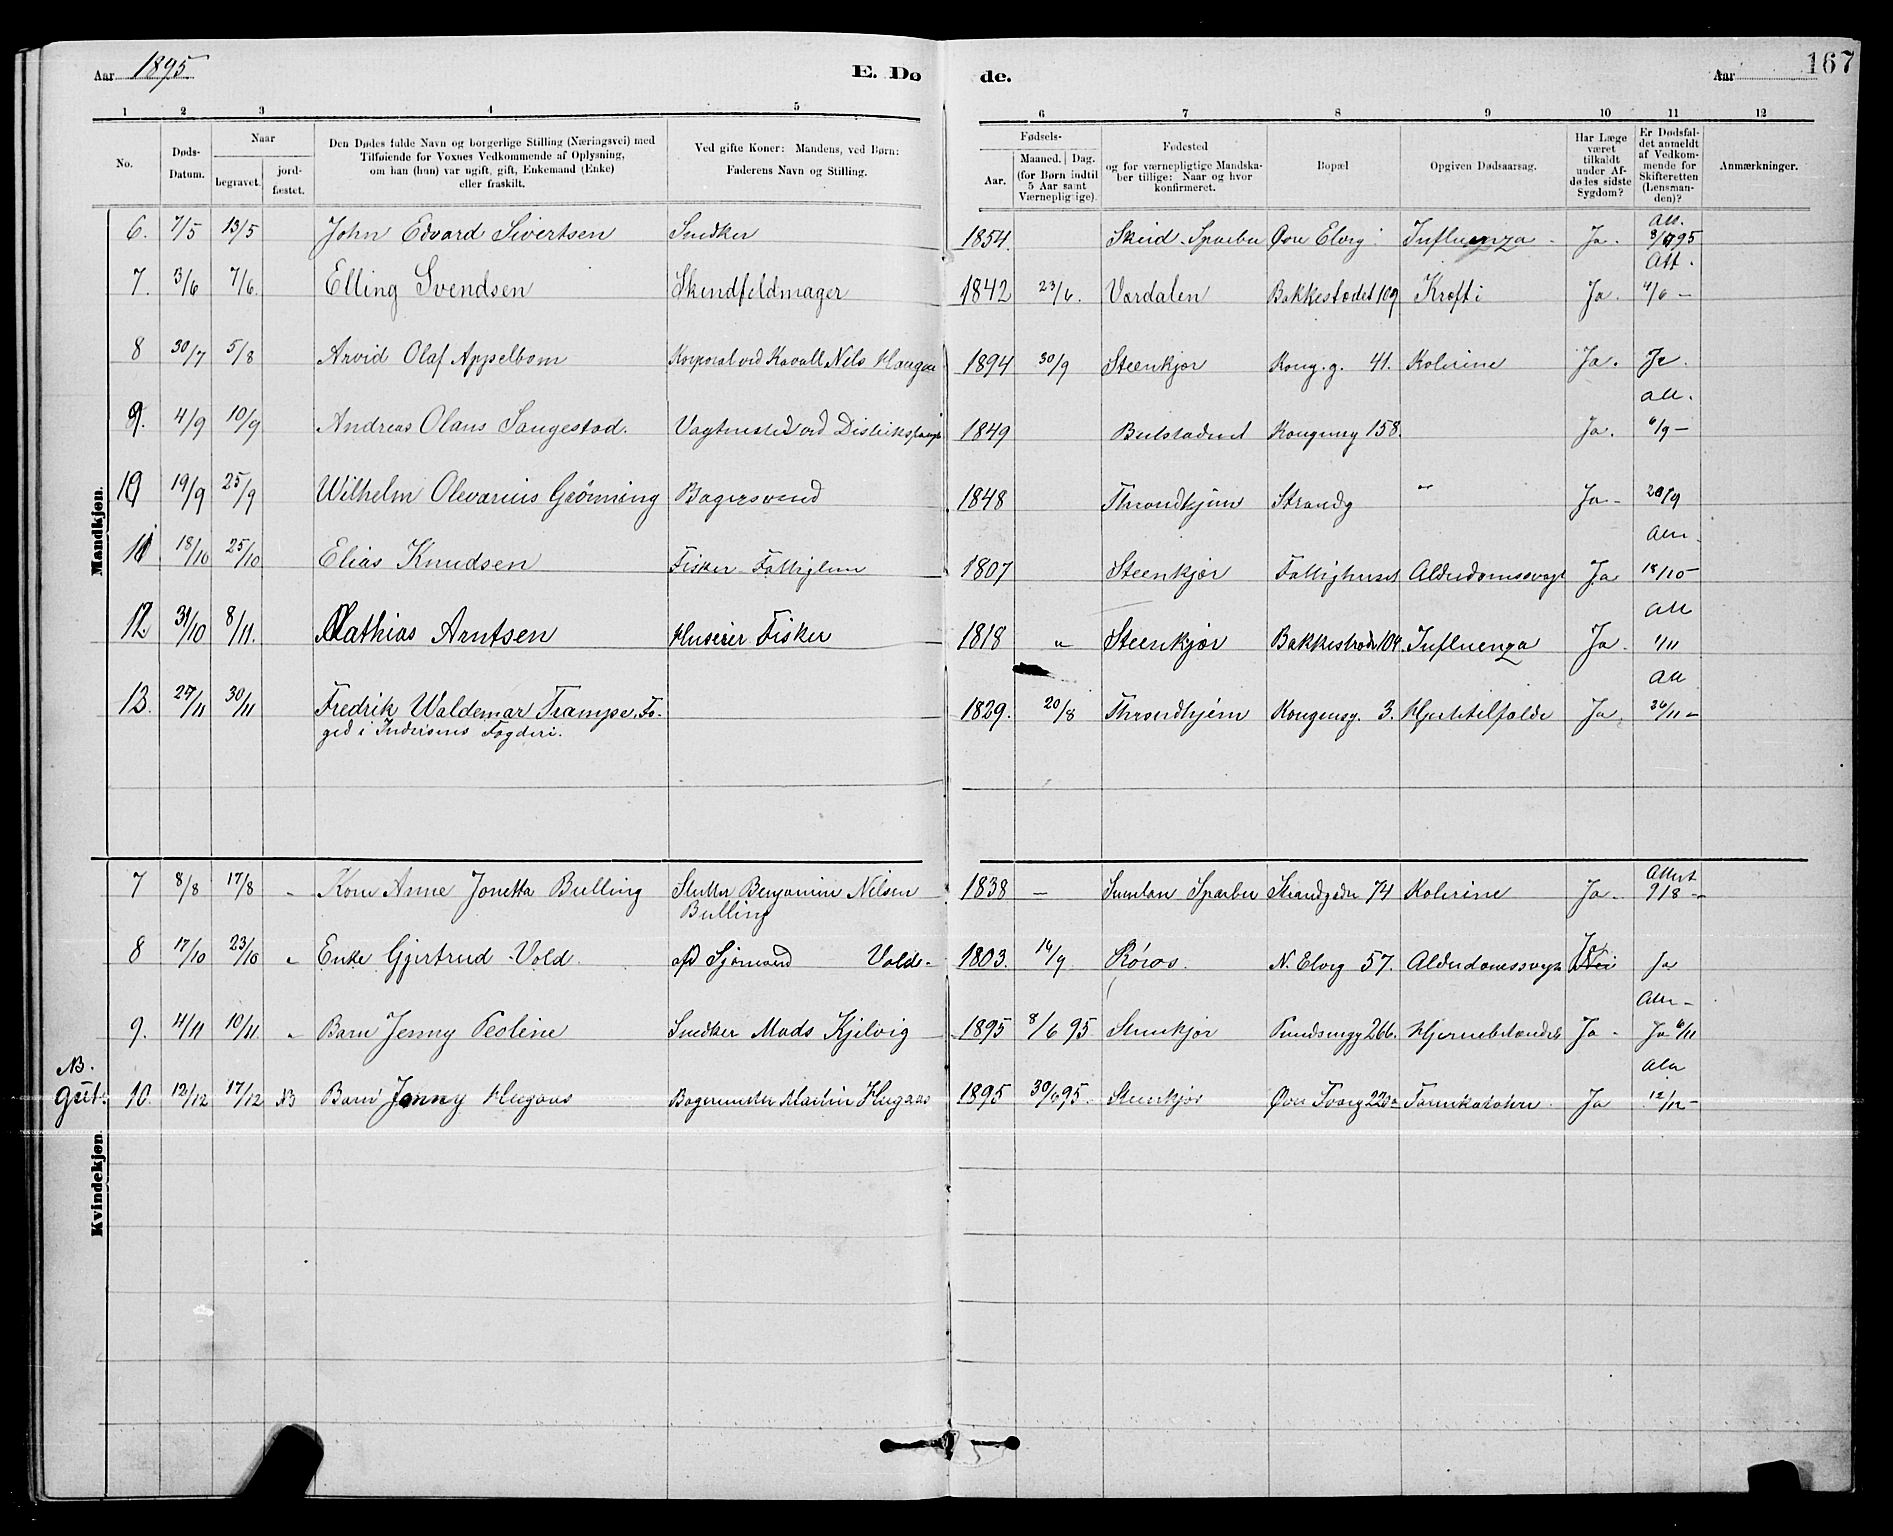 Aar 1895. E. Dø de. Aar 167
1 2 3 4 5 6 7 8 9 10 11 12
No. Døds-Datum. Naar begravet. jordfæstet. Den Dødes fulde Navn og borgerlige Stilling (Næringsvei) med Tilføiende for Voxnes Vedkommende af Oplysning, om han (hun) var ugift, gift, Enkemand (Enke) eller fraskilt. Ved gifte Koner: Mandens, ved Børn: Faderens Navn og Stilling. Fødsels- Aar. Maaned. Dag. (for Børn indtil 5 Aar samt Værnepligtige). Fødested og for værnepligtige Mandskaber tillige: Naar og hvor konfirmeret. Bopæl Opgiven Dødsaarsag. Har Læge været tilkaldt under Afdødes sidste Sygdom? Er Dødsfaldet anmeldt af Vedkommende for Skifteretten (Lensmanden)? Anmærkninger.
Mandkjøn.
6. 7/5 13/5 John Edvard Sivertsen Snedker 1854. Skeid Sparbu Øvre Elvg Influenza Ja. Att.
7. 3/6 7/6. Elling Svendsen Skindfeldmager 1842 23/6. Værdalen Bakkestædet 109 Kræft i Ja. Att. 4/6 —
8 30/7 5/8 Arvid Olaf Appelbom Korporal ved Kavall Nils Haugan 1894 30/9 Steenkjær Kong. g. 41. Kolerine Ja. Ja.
9. 4/9 10/9 Andreas Olaus Sangestad. Vagtmester ved 1849 Beitstadnet Kongensg 158. Ja. Att. 6/9 —
10 19/9 25/9 Wilhelm Olevarius Grønning Bagersvend 1848 Throndhjem Strandg " Ja — 20/9
11 18/10 25/10 Elias Knudsen Fisker Fattiglem 1807 Steenkjær Fattighuset Alderdomssvagh Ja Att. 18/10 —
12 31/10 8/11. Mathias Arntsen Huseier Fisker 1818 " Steenkjær Bakkestrædet 104. Influenza Ja. Att
13. 27/11 30/11 Fredrik Waldemar Trampe, Fo- 1829. 20/8 Throndhjem Kongensg. 3. Hjertetilfælde Ja. Att
ged i Inderøens Fogderi.
Kvindekjøn.
7 8/8 17/8 " Kone Anne Jonetta Bulling Slutter Benjamin Nilsen 1838 — Sparbu Strandgaden 74 Kolerine Ja — Attest 9/8 —
Bulling
8 17/10 23/10 " Enke Gjertrud Vold. Sjømand Vold — 1803. 14/9 Røros. N. Elvg 57. Alderdomssvagh Ja Nei Ja
9. 4/11 10/11. " Barn Jenny Peoline Snedker Mads Kjelvig 1895 8/6 95 Steenkjær 266. Ja — Ja 6/11
NB.
Gut. 10. 12/12 17/12 NB Barn Jenny Hugaas Martin Hugaas 1895 30/6 95. Steenkjær Øvre Torvg Tarmkatarh Ja Att 12/12 —